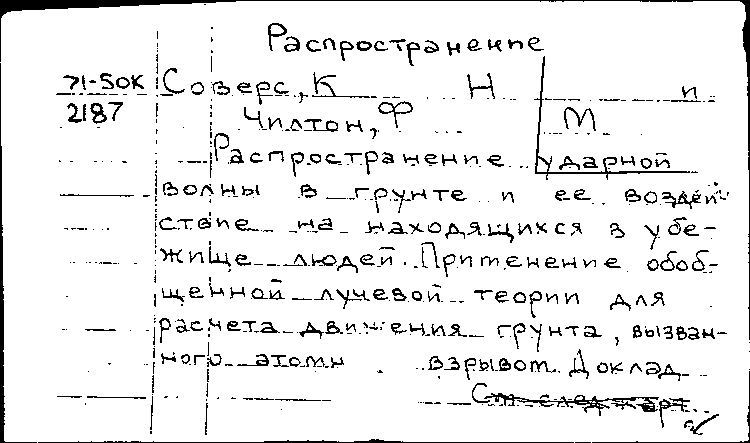 Распространение
71-50К Соверс, К Н и
2187 Чилтон, Ф М
Распространение ударной
волны в грунте и ее воздей-
ствие на находящихся в убе-
жище людей. Применение обоб-
щенной лучевой теории для
расчета движения грунта, вызван-
ного атомн . взрывом. Доклад
См след карт.